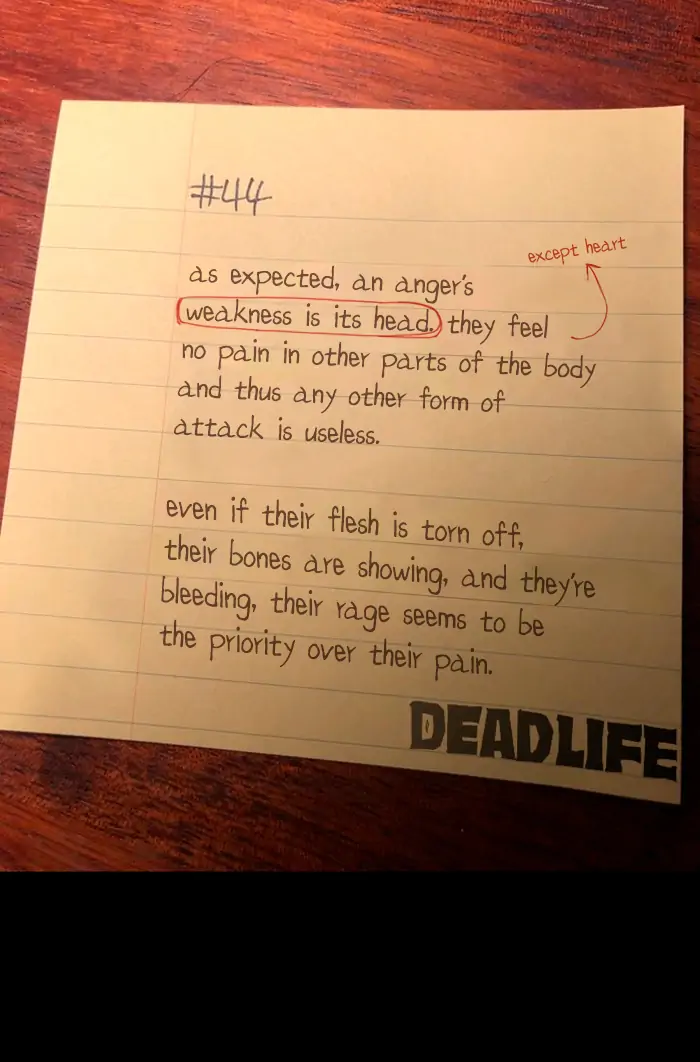 #44
except heart
as expected, an anger's
weakness is its head. they feel
no pain in other parts of the body
and thus any other form of
attack is useless.
even if their flesh is torn off,
their bones are showing, and they're
bleeding, their rage seems to be
the priority over their pain.
DEADLIFE